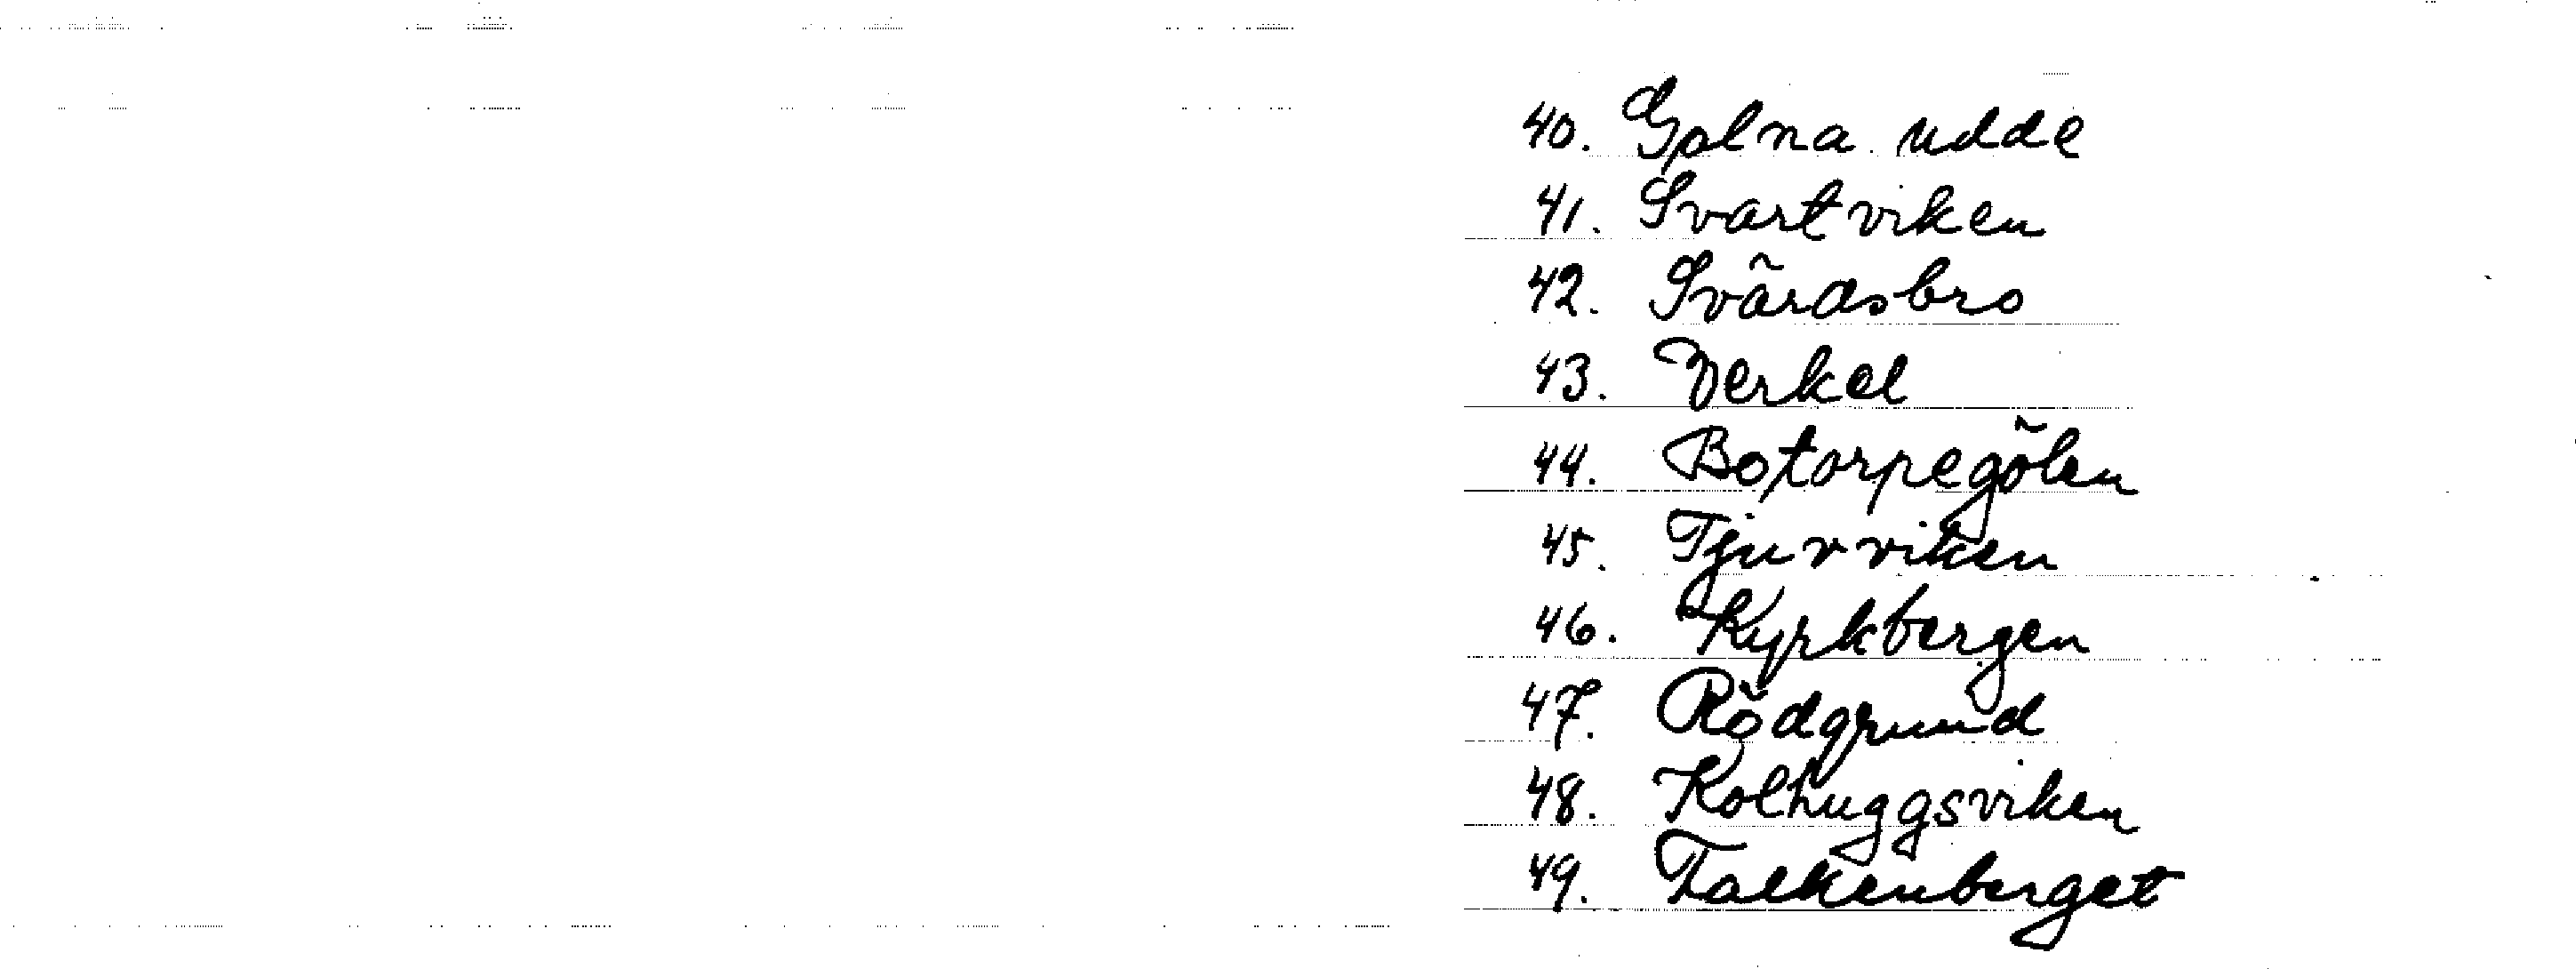 40. Golna udde
41. Svartviken
42. Svärdsbro
43. Verkel
44. Botorpegölen
45. Tjurviken
46. Kyrkbergen
47. Rödgrund
48. Kolhuggsviken
49. Falkenberget